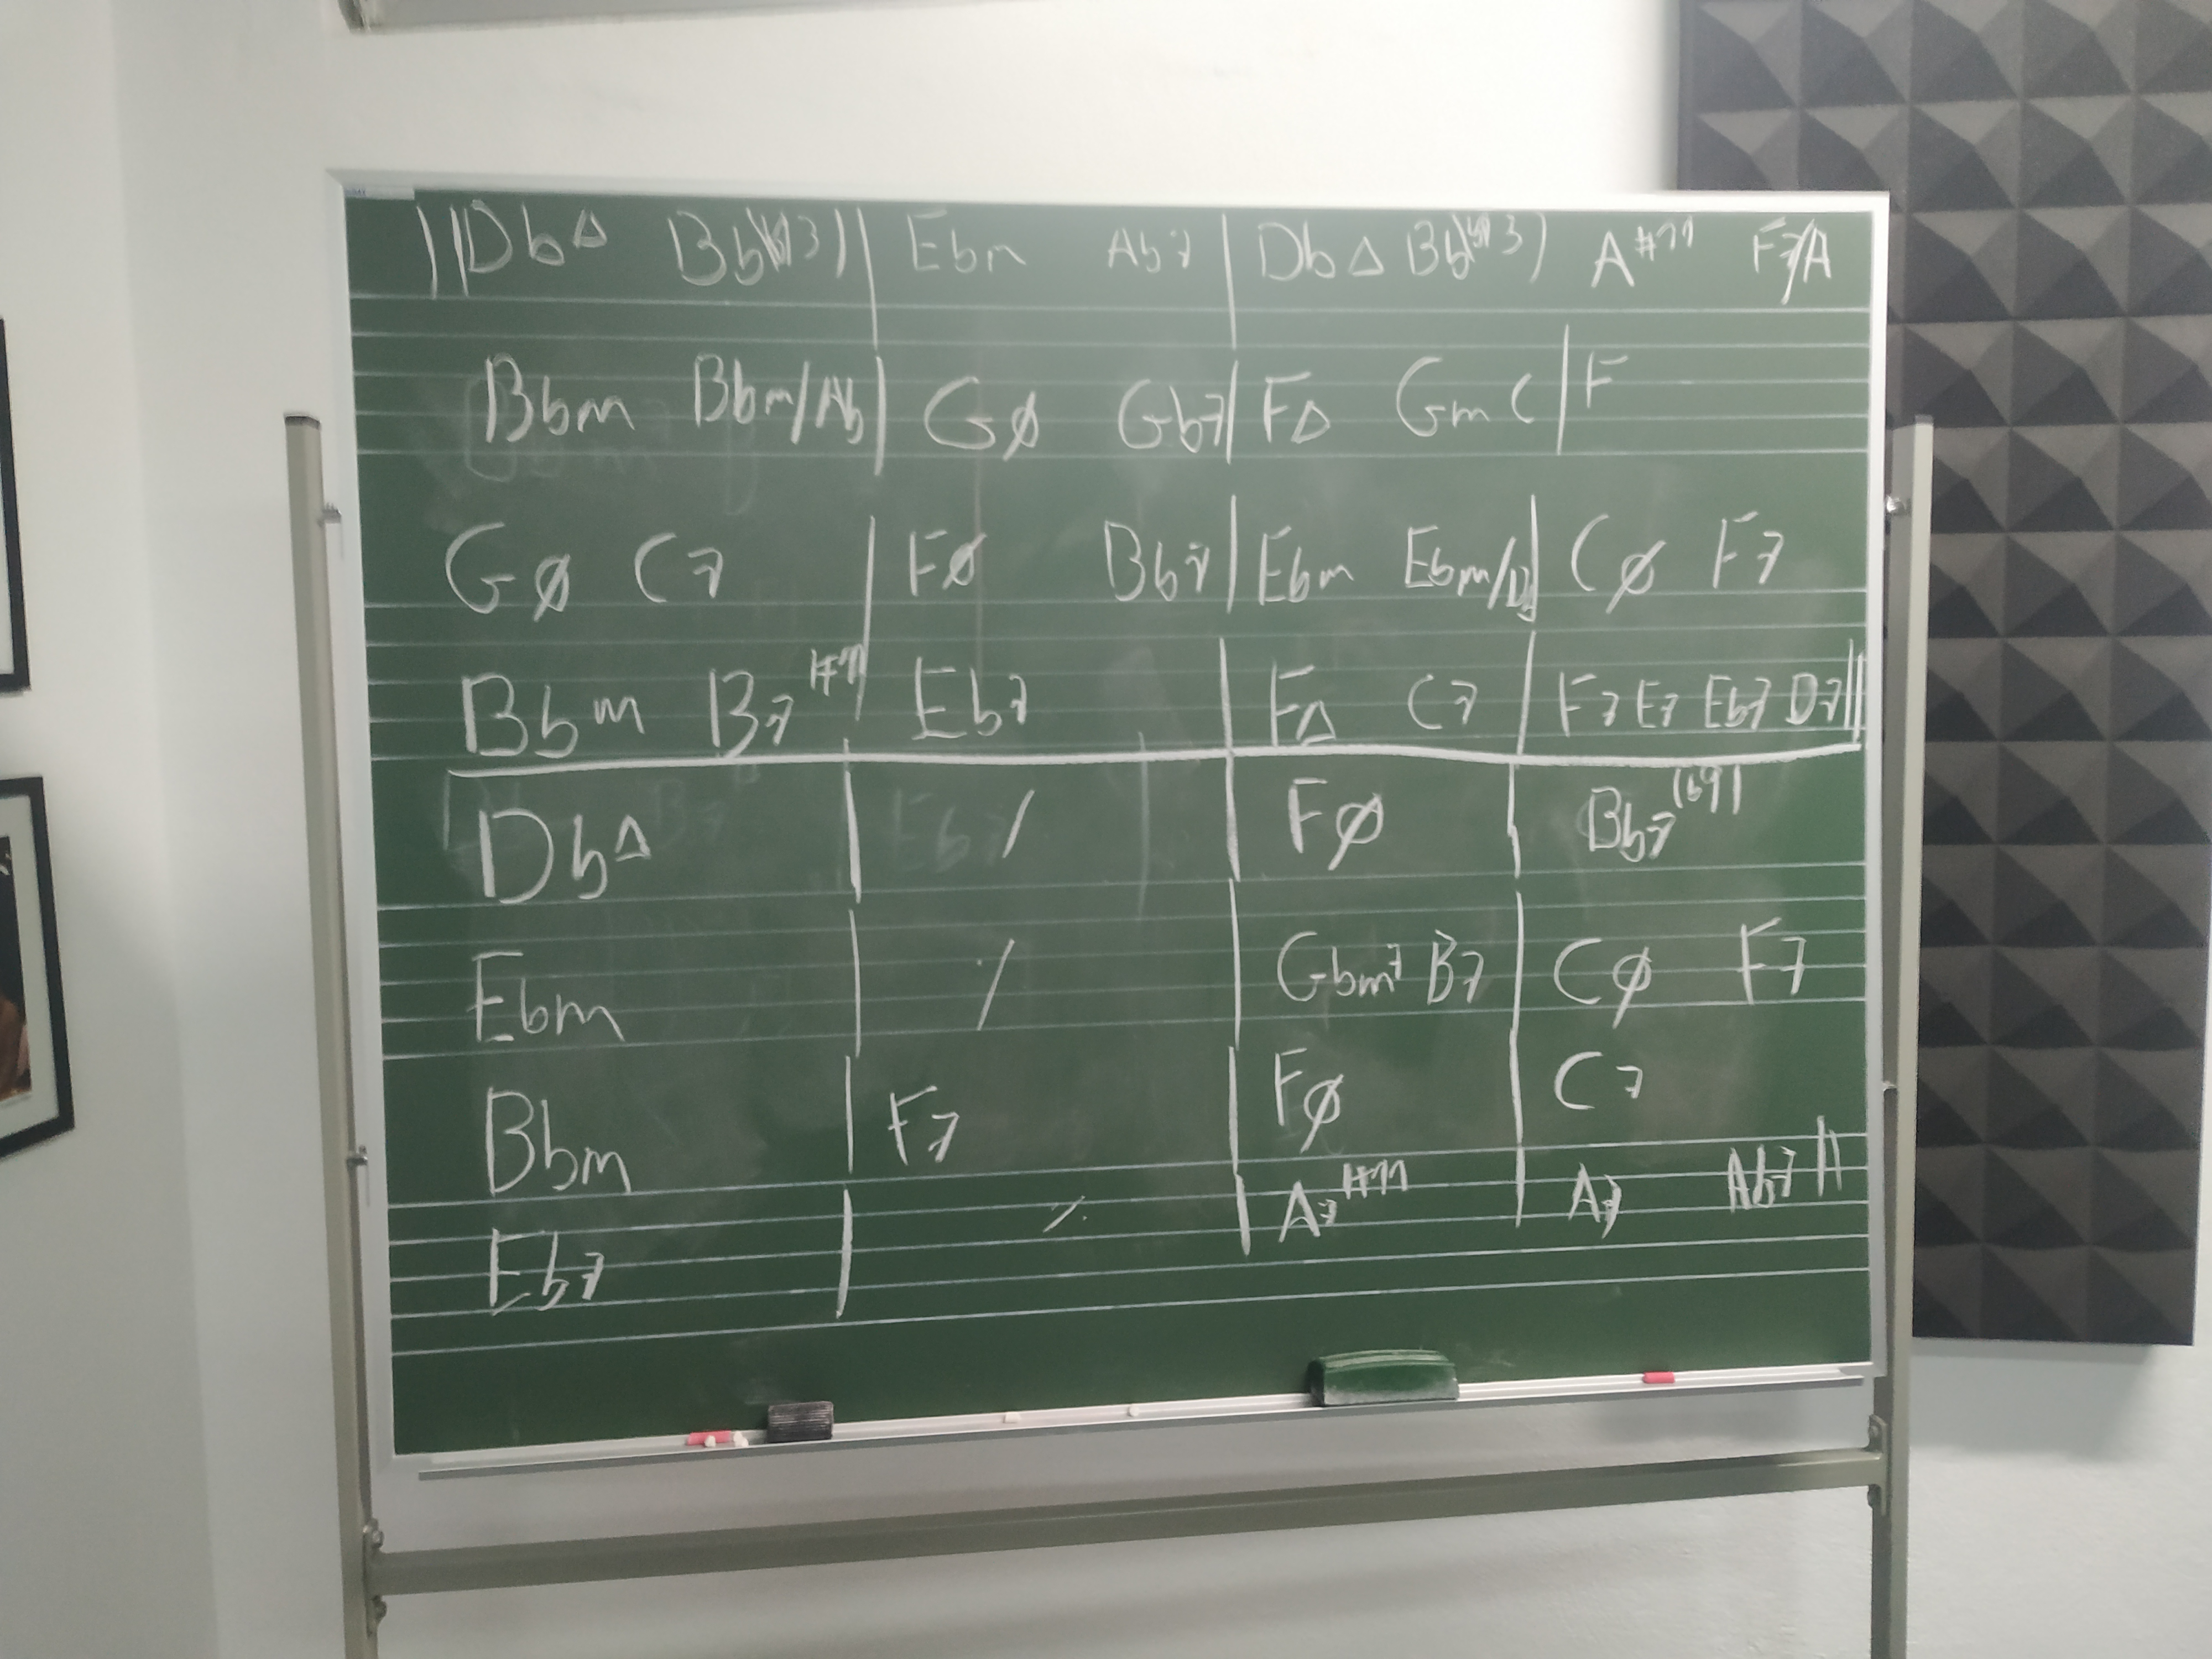 ||DbΔ Bb(b13)| Ebm Ab7 | DbΔ Bb(b13) A#11 F7/A
Bbm Bbm/Ab | GØ Gb7 | FΔ Gm C | F
GØ C7 | FØ Bb7 | Ebm Ebm/Db | CØ F7
Bbm B7#11 | Eb7 | FΔ C7 | F7 E7 Eb7 D7 ||
DbΔ | ٪ | FØ | Bb7(b9)
Ebm | ٪ | Gbm7 B7 | CØ F7
Bbm | F7 | FØ | C7
Eb7 | ٪ | A7#11 | A7 Ab7 ||